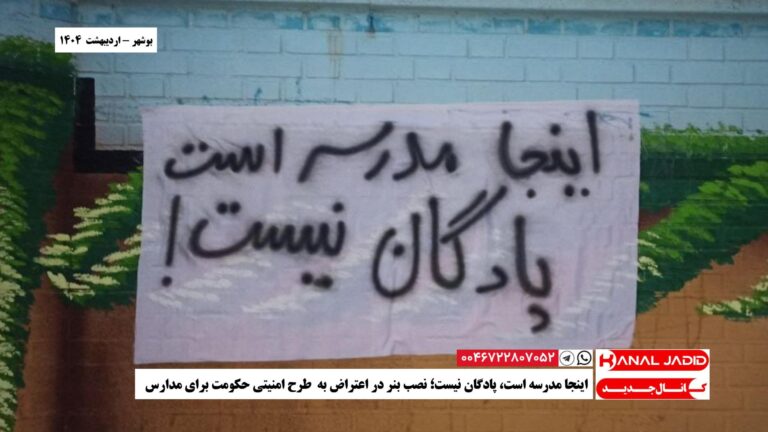 بوشهر - اردیبهشت ۱۴۰۴
اینجا مدرسه است
پادگان نیست!
۰۰۴۶۷۲۲۸۰۷۰۵۲
KANAL JADID
کانال جدید
اینجا مدرسه است، پادگان نیست؛ نصب بنر در اعتراض به طرح امنیتی حکومت برای مدارس